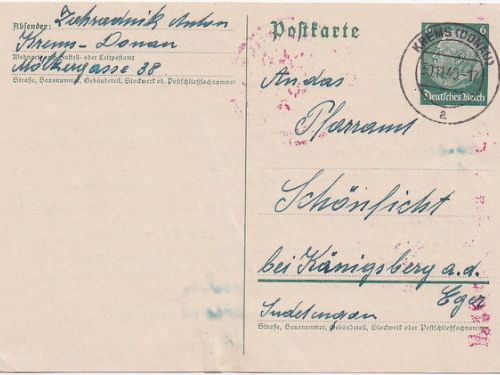 Absender: Zahradnik Anton
Krems-Donau
Wohnort, auch Zustell- oder Leitpostamt
Mölkergasse 38
Straße, Hausnummer, Gebäudeteil, Stockwerk od. Postschließfachnummer
Postkarte
6
Deutsches Reich
KREMS (DONAU)
a
An das
Pfarramt
Schönficht
bei Königsberg a.d.
Eger
Sudetengau
Straße, Hausnummer, Gebäudeteil, Stockwerk oder Postschließfachnummer